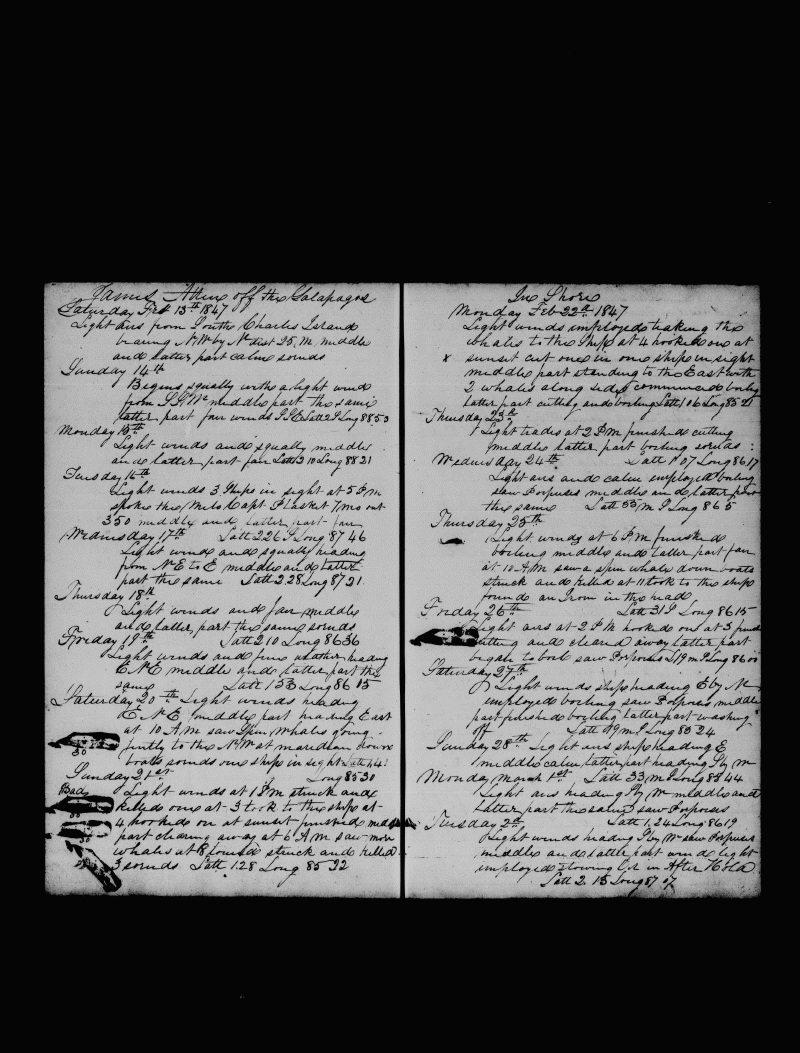 James Allen off the Galapagos
Saturday Feb 13th 1847
Light airs from South Charles Island
bearing N W by N dist 25 M middle
and latter part calm sounds
Sunday 14th
Begins squally with a light wind
from middle part the same
latter part fair winds Latt 2 Long 88 53
Monday 15th
Light winds and squally middle
and latter part fair Latt 2 10 Long 88 21
Tuesday 16th
Light winds 3 Ships in sight at 5 P M
spoke the Capt 7 mo out
350 middle and latter part fair
Wednesday 17th Latt 2 26 S Long 87 46
Light wind and squally heading
from N E to E middle and latter
part the same Latt 2.28 Long 87 21
Thursday 18th
Light winds and fair middle
and latter part the same sounds
Friday 19th Latt 2 10 Long 86 36
Light winds and fine weather heading
E N E middle and latter part the
same Latt 1 53 Long 86 15
Saturday 20th Light winds heading
E N E middle part heading East
at 10 A M saw Spm Whales going
to the N W at meredean down
boats sounds one ship in sight Latt
30
Sunday 21st Long 85 30
Light winds at 1 P M struck and
killed one at 3 took to the ship at
4 hooked on at sunset finished
part clearing away at 6 A M saw more
whales at 8 struck and killed
3 sounds Latt 1.28 Long 85 22
In Shore
Monday Feb 22d 1847
Light winds employed taking the
whales to the ship at 4 hooked one at
x sunset cut one in one ship in sight
middle part standing to the East with
2 whales along side commenced boiling
latter part cutting and boiling Latt 1 06 Long 85 21
Thursday 23th
Light trades at 2 P M finished cutting
middle latter part boiling sounds
Wednesday 24th Latt 1 07 Long 86 17
Light airs and calm employed boiling
saw Porpuses middle and latter part
the same Latt 55 m S Long 86 5
Thursday 25th
Light winds at 6 P M finished
boiling middle and latter part fair
at 10 A M saw a spm whale down boats
struck and killed at 11 took to the ship
found an Iron in the head
Friday 26th Latt 31 S Long 86 15
Light airs at 2 P M hooked on at 3
cutting and cleared away latter part
began to boil saw Porpuses 19 m Long 86 00
Saturday 27th
Light winds ship heading E by N
employed boiling saw Porpuses middle
part finished boiling latter part washing
off Latt 09 m Long 85 24
Sunday 28th Light airs ship heading E
middle calm latter part heading S by W
Monday March 1st Latt 33 m Long 85 44
Light airs heading S by W middle and
latter part the same saw Porpuses
Tuesday 2d Latt 1.24 Long 86 19
Light winds heading S by W saw Porpuses
middle and latter part wind light
employed stowing Oil in After Hold
Latt 2 15 Long 87 07